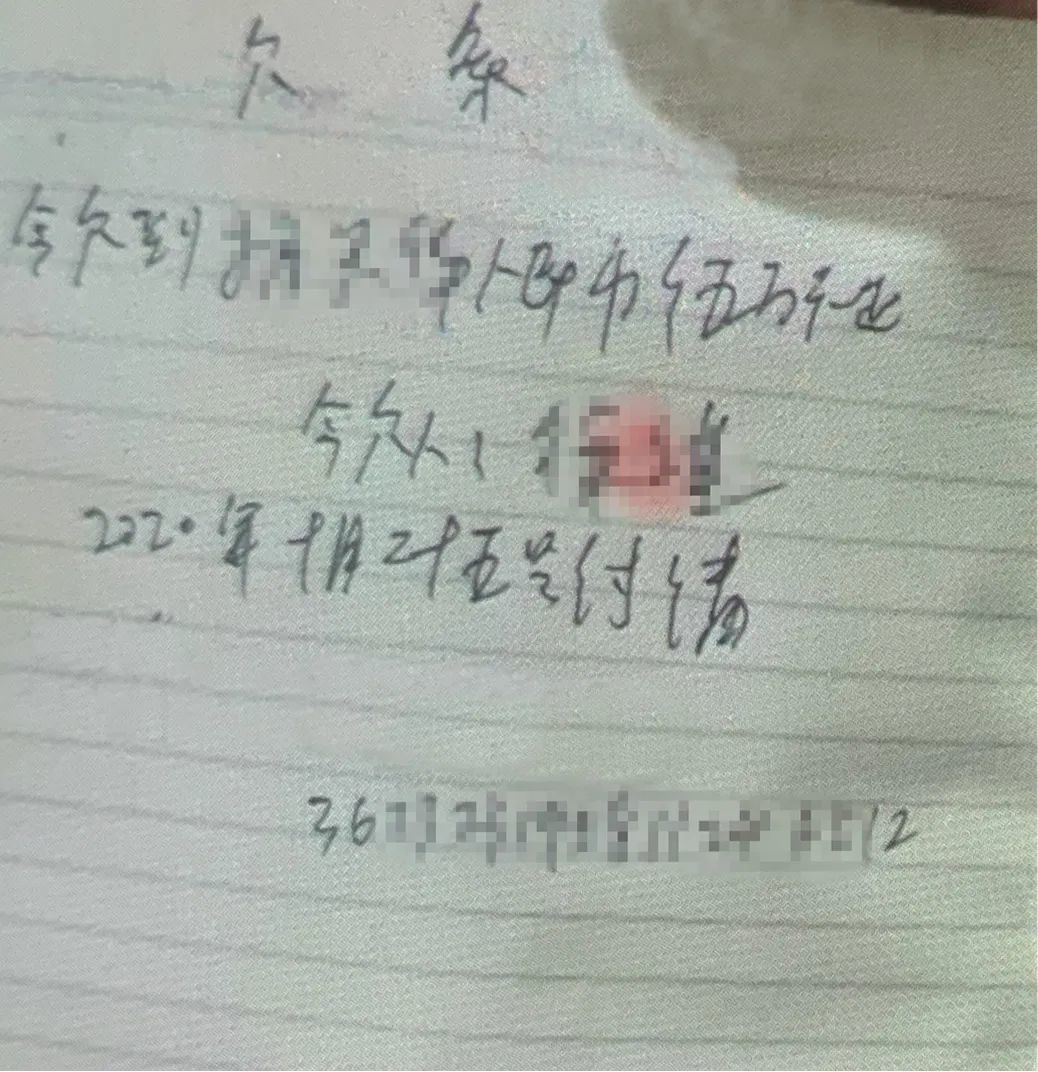 欠 条
今欠到 人民币伍万元正
今欠人:
2020年十月二十五号付清
36 12